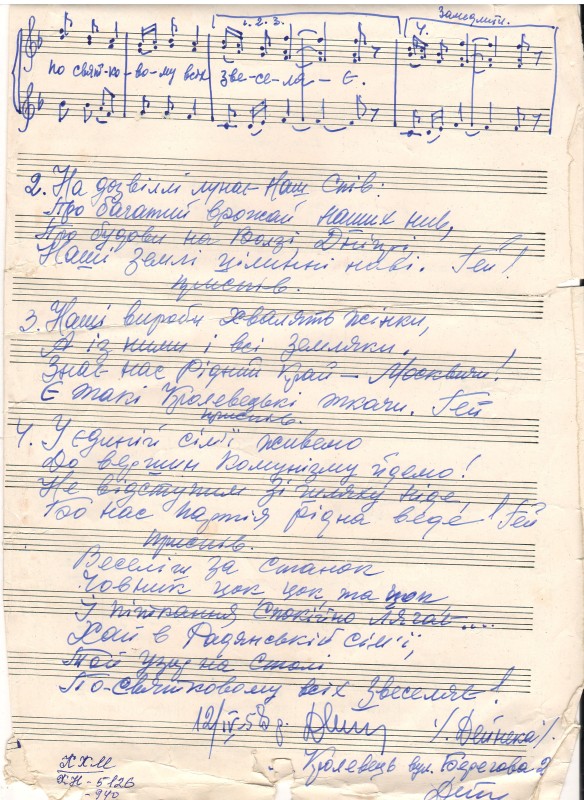 1. 2. 3.
4.
По святко-во-му всіх Зве-се-ля-є.
2. На дозвіллі лунає наш спів:
Про багатий врожай наших нив,
Про будови на Волзі Дніпрі
Наші землі цілинні нові. Гей!
Приспів.
3. Наші вироби хвалять жінки,
А із ними і всі земляки.
Знає нас рідний край – Москвичі!
Є такі Кролевецькі ткачи. Гей
Приспів.
4. У єдиній сім'ї живемо
До вершин комунізму йдемо!
Не відступим зі шляху ніде,
Бо нас партія рідна веде! Гей
Приспів.
Веселіш за станок
Човник цок цок та цок
І піткання спокійно лягає....
Хай в Радянській сім'ї,
Той узід на столі
По-святковому всіх звеселяє!
12/IV 58 р. /. Дейнека/.
Кролевець вул. 2
ККМ
КН-5126
940